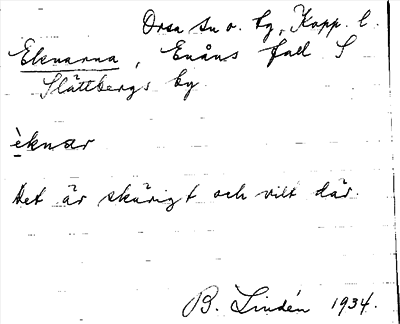 Orsa sn o. by, Kopp. l.
Eknarna, Enåns fall S
Slättbergs by.
èknar
Det är skärigt och vilt där.
B. Lindén 1934.